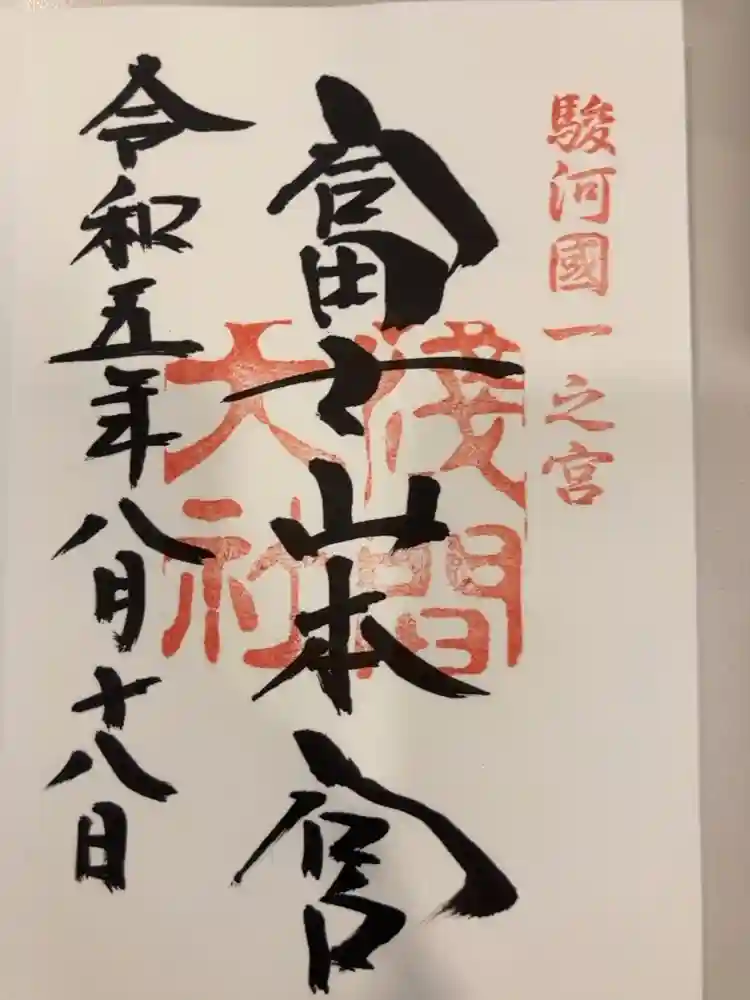 駿河國一之宮
富士山本宮
浅間
大社
令和五年八月十八日